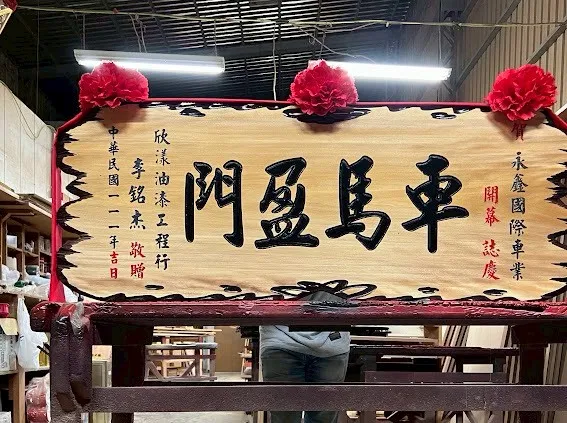 賀 永鑫國際車業
開幕 誌慶
車馬盈門
欣漾油漆工程行
李銘杰 敬贈
中華民國一一一年吉日